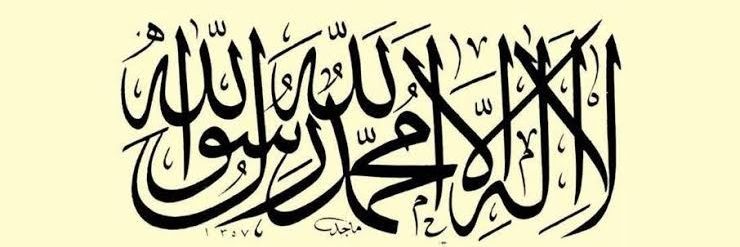 لا إله إلا الله محمد رسول الله
ماجد
١٣٥٧